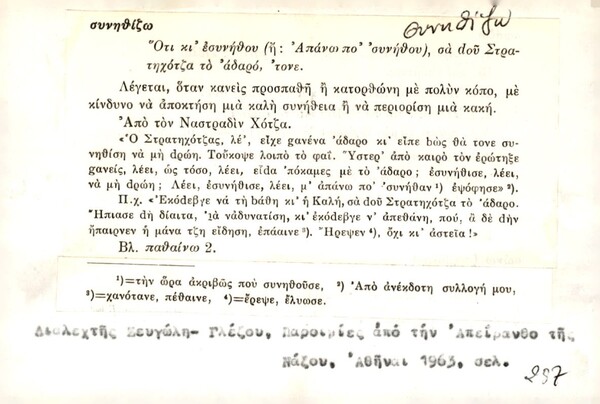 συνηθίζω
συνηθίζω
Ὅτι κι' ἐσυνήθου (ἤ: Ἀπάνω πο' 'συνήθου), σὰ dοῦ Στρα-
τηχότζα τὸ ἀδαρό, 'τονε.
Λέγεται, ὅταν κανεὶς προσπαθῆ ἢ κατορθώνη μὲ πολὺν κόπο, μὲ
κίνδυνο νὰ ἀποκτήση μιὰ καλὴ συνήθεια ἢ νὰ περιορίση μιὰ κακή.
Ἀπὸ τὸν Ναστραδὶν Χότζα.
«Ὁ Στρατηχότζας, λέ', εἶχε gανένα 'άδαρο κι' εἶπε bὼς θὰ τονε συ-
νηθίση νὰ μὴ dρώη. Τοὔκοψε λοιπὸ τὸ φαΐ. Ὕστερ' ἀπὸ καιρὸ τὸν ἐρώτηξε
gανείς, λέει, ὡς τόσο, λέει, εἶdα 'πόκαμες μὲ τὸ 'άδαρο; ἐσυνήθισε, λέει,
νὰ μὴ dρώη; Λέει, ἐσυνήθισε, λέει, μ' ἀπάνω πο' 'συνήθαν ¹) ἐψόφησε» ²).
Π.χ. «Ἐκόδεβγε νὰ τὴ βάθη κι' ἡ Καλή, σὰ dοῦ Στρατηχότζα τὸ 'άδαρο.
Ἤπιασε dὴ δίαιτα, 'ιὰ νὰδυνατίση, κι' ἐκόδεβγε ν' ἀπεθάνη, πού, ἂ δὲ dὴν
ἤπαιρνεν ἡ μάνα τζη εἴδηση, ἐπάαινε ³). Ἤρεψεν ⁴), ὄχι κι' ἀστεῖα!»
Βλ. παθαίνω 2.
¹)=τὴν ὥρα ἀκριβῶς ποὺ συνηθοῦσε, ²) Ἀπὸ ἀνέκδοτη συλλογή μου,
³)=χανότανε, πέθαινε, ⁴)=ἔρεψε, ἔλυωσε.
Διαλεχτῆς Ζευγώλη- Γλέζου, Παροιμίες ἀπό τήν Ἀπείρανθο τῆς
Νάξου, Ἀθῆναι 1963, σελ.
237